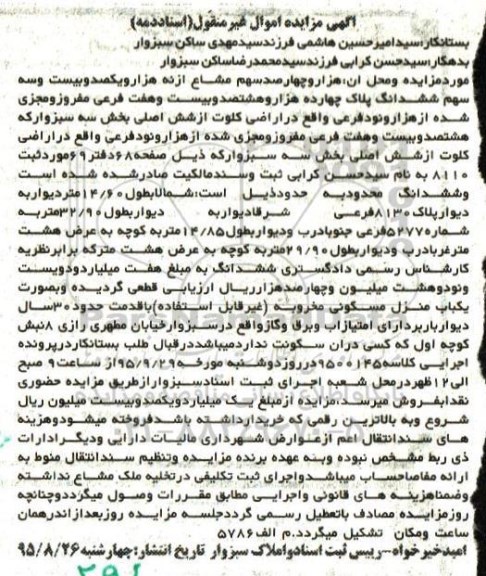 آگهی مزایده اموال غیر منقول(اسنادذمه)
بستانکار:سیدامیرحسین هاشمی فرزندسیدمهدی ساکن سبزوار
بدهکار:سیدحسن کرابی فرزندسیدمحمدرضاساکن سبزوار
موردمزایده ومحل آن:هزاروچهارصدسهم مشاع ازنه هزارویکصدوبیست وسه
سهم ششدانگ پلاک چهارده هزاروهشتصدوبیست وهفت فرعی مفروزومجزی
شده ازهزارونودفرعی واقع دراراضی کلوت ازشش اصلی بخش سه سبزوارکه
هشتصدوبیست وهفت فرعی مفروزومجزی شده ازهزارونودفرعی واقع دراراضی
کلوت ازشش اصلی بخش سه سبزوارکه ذیل صفحه۶۸دفتر۶۹موردثبت
۸۱۱۰ به نام سیدحسن کرابی ثبت وسندمالکیت صادرشده شده است
وششدانگ محدودبه حدودذیل است:شمالابطول۱۴/۶۰متردیواربه
دیوارپلاک۸۱۳۰فرعی شرقادیواربه دیواربطول۳۲/۹۰متربه
شماره۵۲۷۷فرعی جنوبادرب ودیواربطول۱۴/۸۵متربه کوچه به عرض هشت
مترغربادرب ودیواربطول۲۹/۹۰متربه کوچه به عرض هشت مترکه برابرنظریه
کارشناس رسمی دادگستری ششدانگ به مبلغ هفت میلیاردودویست
ونودوهشت میلیون وچهارصدهزارریال ارزیابی قطعی گردیده وبصورت
یکباب منزل مسکونی مخروبه (غیرقابل استفاده)باقدمت حدود۳۰سال
دیوارباربردارای امتیازآب وبرق وگازواقع درسبزوارخیابان مطهری رازی ۸نبش
کوچه اول که کسی درآن سکونت نداردمیباشددرقبال طلب بستانکاردرپرونده
اجرایی کلاسه۹۵۰۰۱۴۵درروزدوشنبه مورخه۹۵/۹/۲۹از ساعت۹ صبح
الی۱۲ظهردرمحل شعبه اجرای ثبت اسنادسبزوارازطریق مزایده حضوری
نقدابفروش میرسد.مزایده ازمبلغ یک میلیاردویکصدوبیست میلیون ریال
شروع وبه بالاترین رقمی که خریدارداشته باشدفروخته میشودوهزینه
های سندانتقال اعم ازعوارض شهرداری مالیات دارایی ودیگرادارات
ذی ربط مشخص نبوده وبه عهده برنده مزایده وتنظیم سندانتقال منوط به
ارائه مفاصاحساب میباشدواجرای ثبت تکلیفی درتخلیه ملک مشاع نداشته
وضمناهزینه های قانونی واجرایی مطابق مقررات وصول میگرددوچنانچه
روزمزایده مصادف باتعطیل رسمی گرددجلسه مزایده روزبعدازاندرهمان
ساعت ومکان تشکیل میگردد.م الف۵۷۸۶
امیدخیرخواه–رییس ثبت اسنادواملاک سبزوار تاریخ انتشار:چهارشنبه۹۵/۸/۲۶